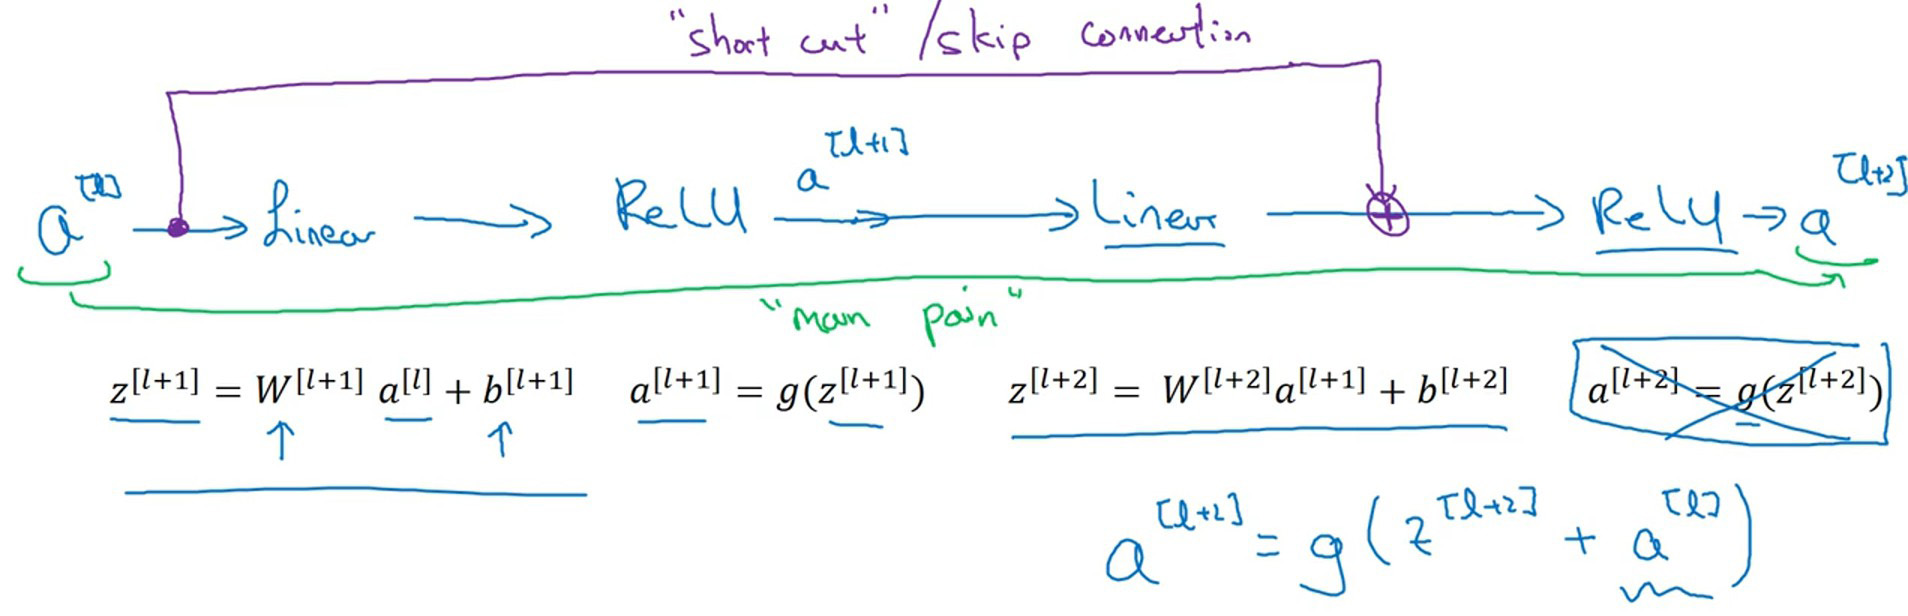 "short cut" / skip connection
a^[l] → Linear → ReLU a^[l+1] → Linear → ⊕ → ReLU → a^[l+2]
"main
z^[l+1] = W^[l+1] a^[l] + b^[l+1] a^[l+1] = g(z^[l+1]) z^[l+2] = W^[l+2] a^[l+1] + b^[l+2] a^[l+2] = g(z^[l+2])
a^[l+2] = g(z^[l+2] + a^[l])